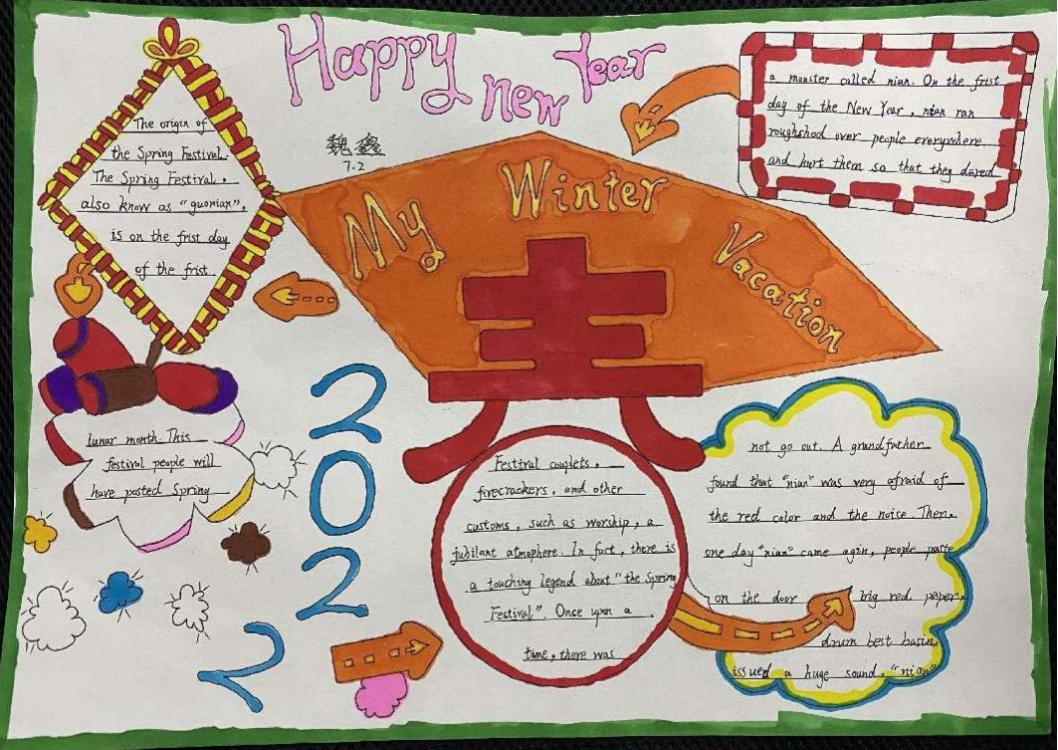 Happy
new Year
魏鑫
7.2
My Winter Vacation
The origin of
the Spring Festival.
The Spring Festival,
also know as "guonian",
is on the frist day
of the frist
lunar month. This
festival people will
have posted Spring
Festival couplets,
firecrackers, and other
customs, such as worship, a
jubilant atmophere. In fact, there is
a touching legend about "the Spring
Festival". Once upon a
time, there was
a monster called nian. On the frist
day of the New Year, nian ran
roughshod over people everywhere
and hurt them so that they dared
not go out. A grandfather
found that "nian" was very afraid of
the red color and the noise. Then,
one day "nian" came agin, people paste
on the door big red paper,
drum best basin
issued a huge sound, "nian"
春
2022